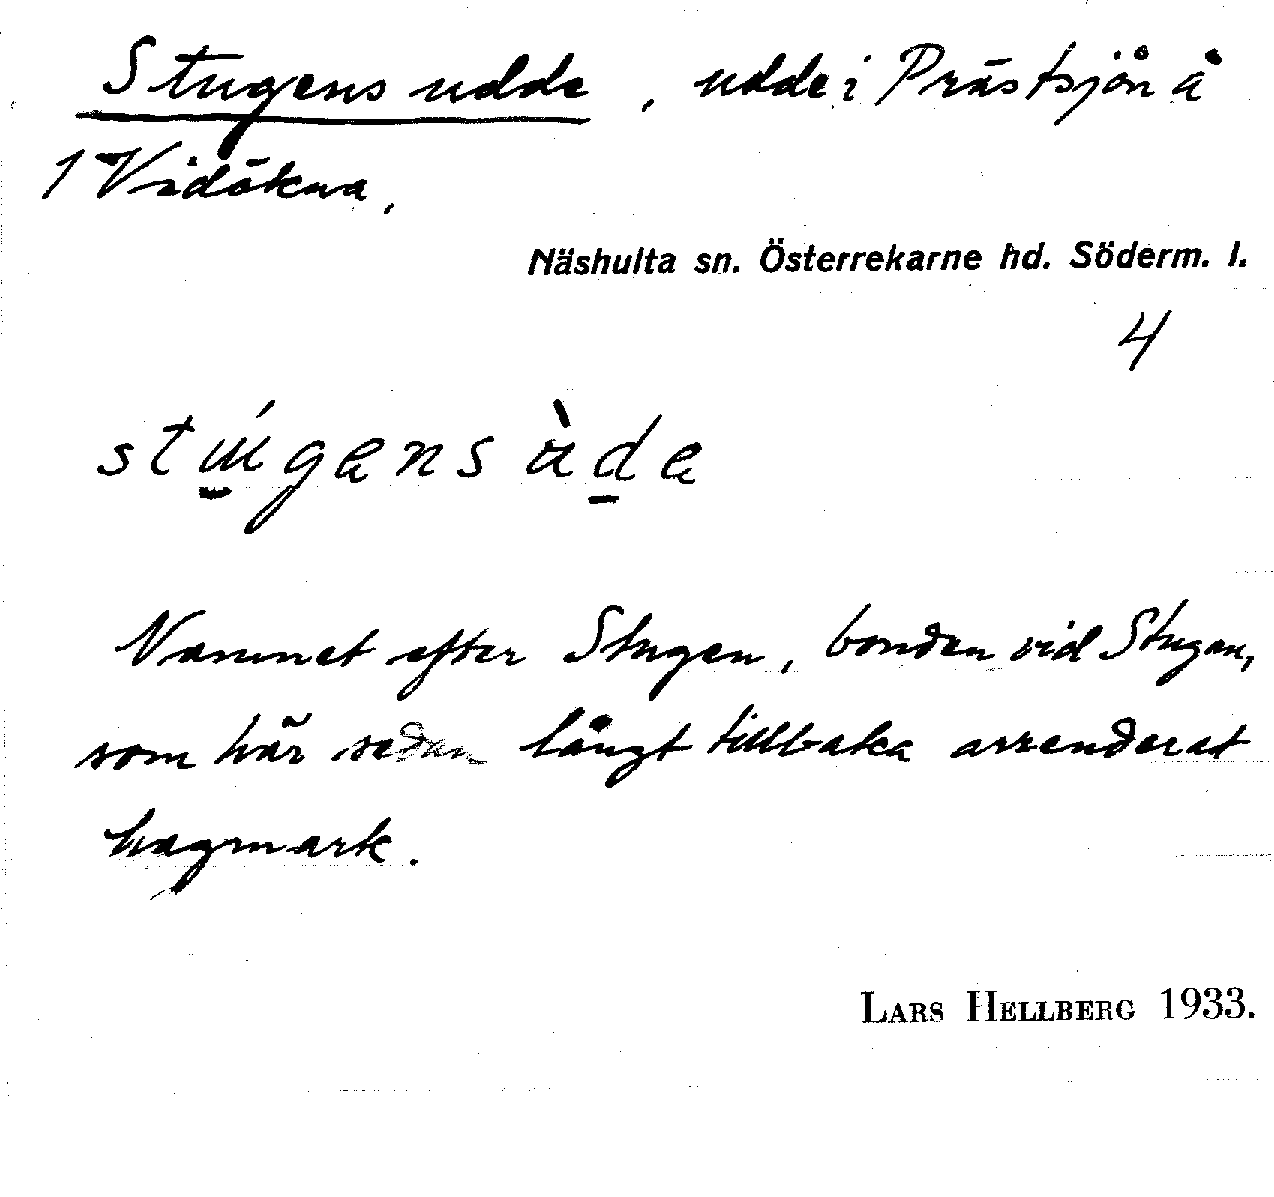 Stugens udde, udde i Prästsjön å
1 Vidökna,
Näshulta sn. Österrekarne hd. Söderm. l.
4
Namnet efter Stugen, bonden vid Stugan,
som här sedan långt tillbaka arrenderat
hagmark.
LARS HELLBERG 1933.